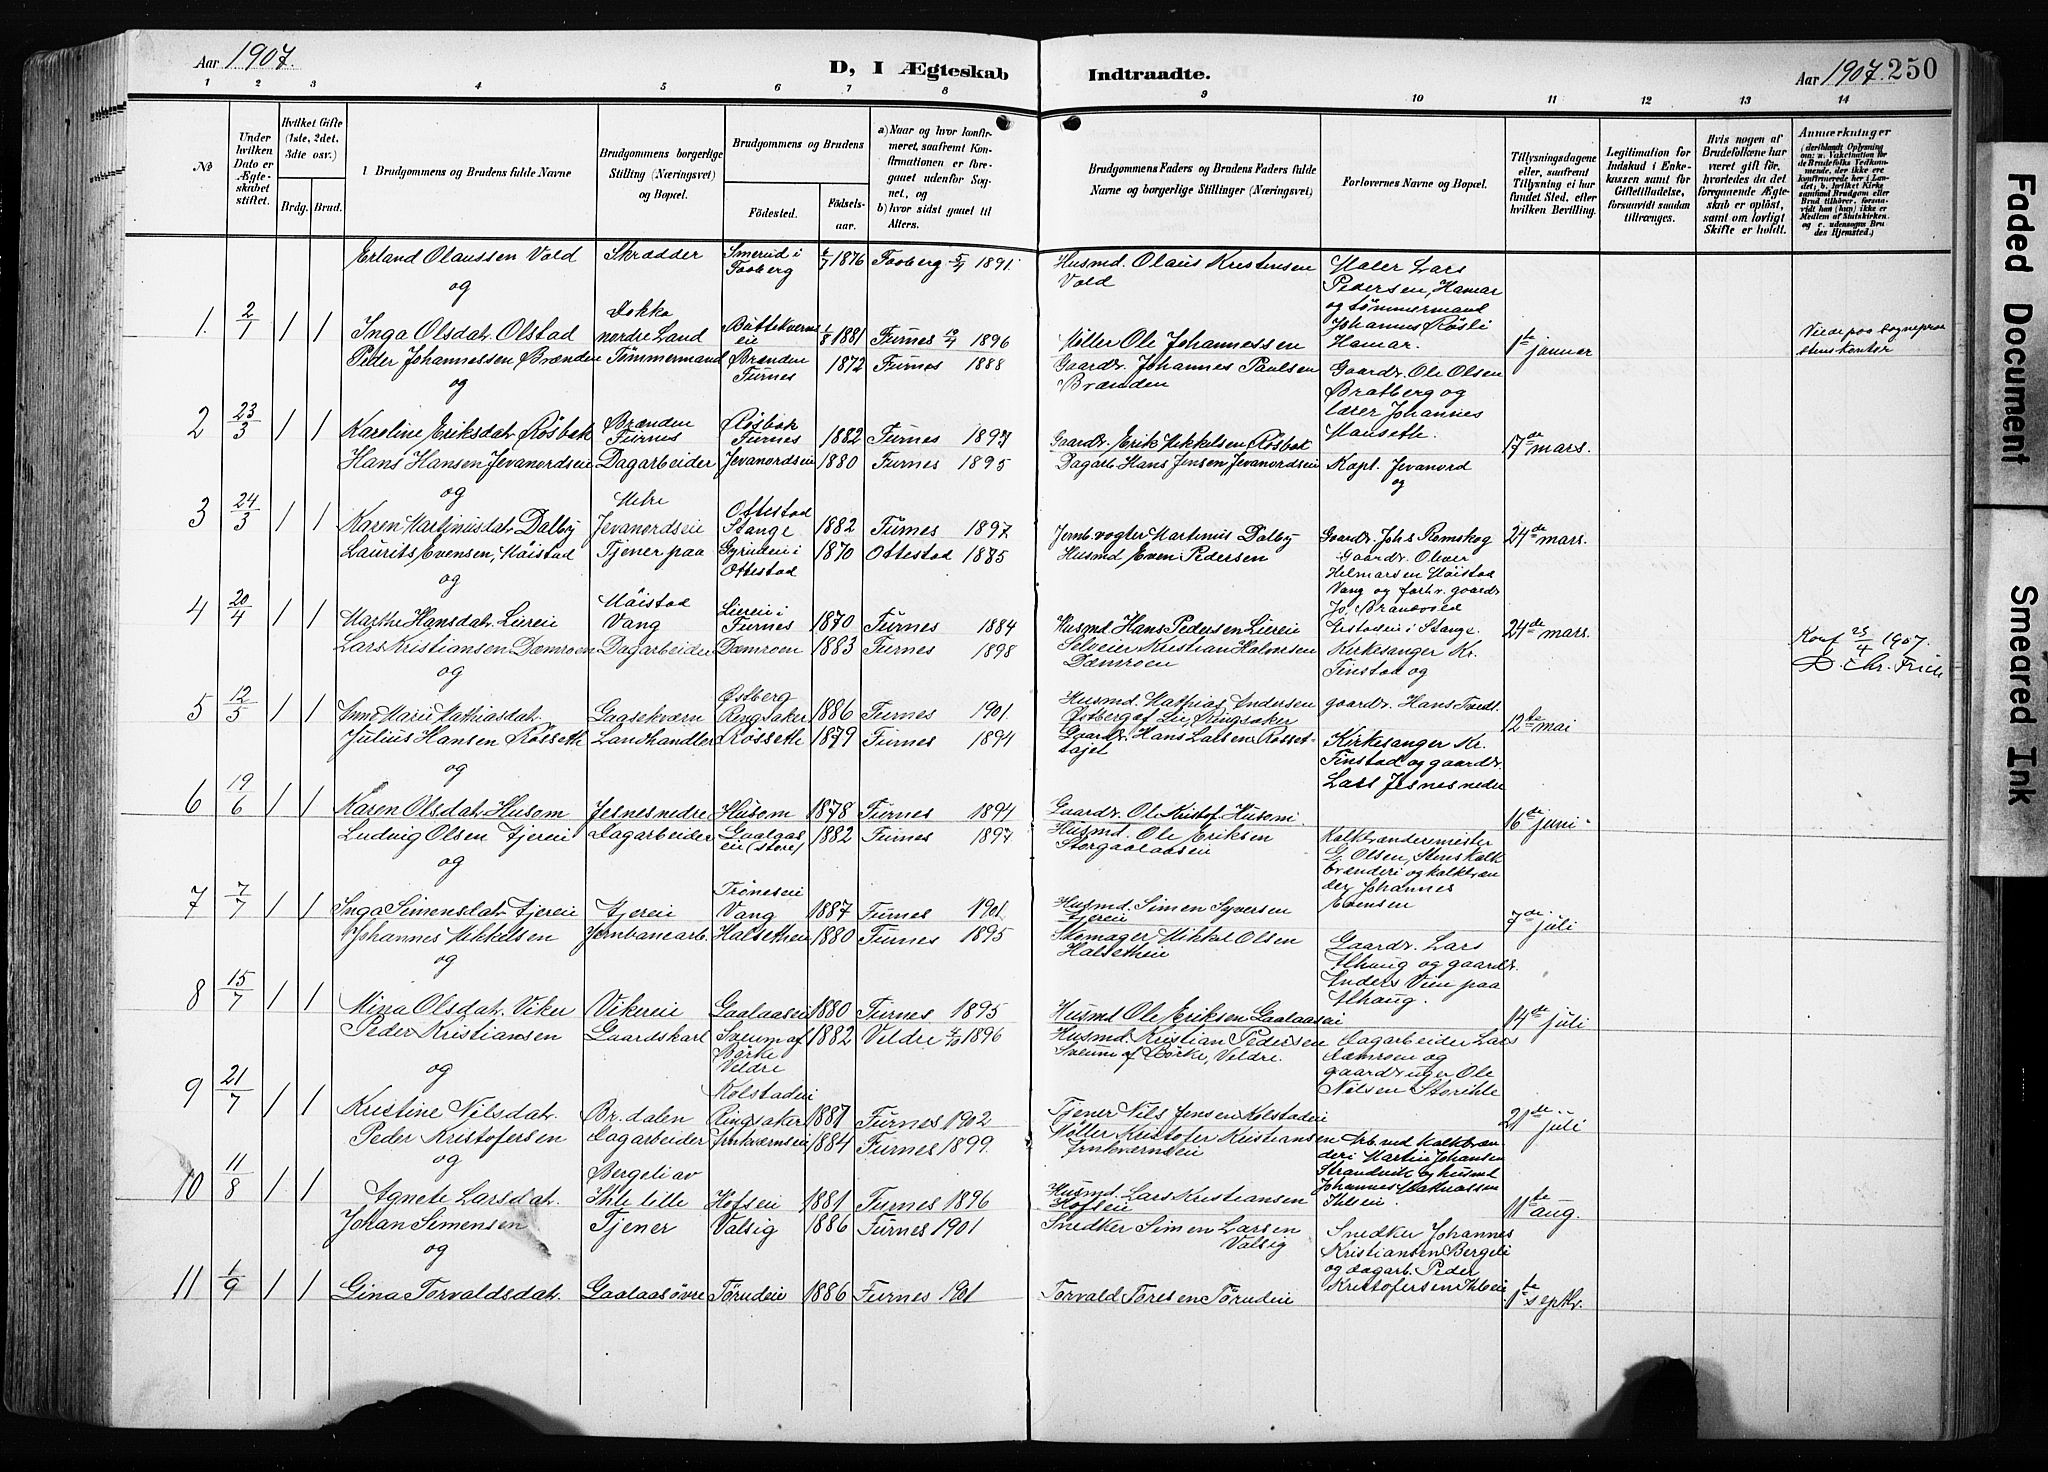 Aar 1907.
D, I Ægteskab
Indtraadte.
Aar 1907. 250
1 2 3 4 5 6 7 8 9 10 11 12 13 14
№
Under hvilken Dato er Ægteskabet stiftet.
Hvilket Gifte (1ste, 2det, 3dte osv.)
Brdg. Brud.
Brudgommens og Brudens fulde Navne
Brudgommens borgerlige Stilling (Næringsvei) og Bopæl.
Brudgommens og Brudens
Fødested. Fødselsaar.
a) Naar og hvor konfirmeret, saafremt Konfirmationen er foregaaet udenfor Sognet, og
b) hvor sidst gaaet til Alters.
Brudgommens Faders og Brudens Faders fulde Navne og borgerlige Stillinger (Næringsvei)
Forlovernes Navne og Bopæl.
Tillysningsdagene eller, saafremt Tillysning ei har fundet Sted, efter hvilken Bevilling.
Legitimation for Indskud i Enkekassen samt for Giftetilladelse, forsaavidt saadan tiltrænges.
Hvis nogen af Brudefolkene har været gift før, hvorledes da det foregaaende Ægteskab er opløst, samt om lovligt Skifte er holdt.
Anmærkninger
(deriblandt Oplysning om: a. Vakcination for de Brudefolks Vedkommende, der ikke ere konfirmerede her i Landet; b. hvilket Kirkesamfund Brudgom eller Brud tilhører, forsaavidt han (hun) ikke er Medlem af Statskirken og c. udensogns Brudes Hjemsted.)
Erland Olaussen Vold Skrædder Smerud i Faaberg 6/7 1876 Faaberg 5/4 1891. Husmd. Olaus Kristensen Vold
Maler Lars Pedersen, Hamar og tømmermand Johannes Røsli Hamar.
og
1. 2/1 1 1 Inga Olsdat. Olstad Dokka nordre Land Büttekverns eie 1/8 1881 Furnes 1896 Møller Ole Johannessen 1ste januar
Viede paa sogneprestens kontor
Peder Johannessen Brænden Tømmermand Brænden Furnes 1872 Furnes 1888 Gaardr. Johannes Paulsen Brænden
Gaardr. Ole Olsen Bratberg og lærer Johannes Hanseth.
og
2 23/3 1 1 Karoline Eriksdat. Røsbak Brænden Furnes Røsbak Furnes 1882 Furnes 1897 Gaardr. Erik Mikkelsen Røsbak 17de mars.
Hans Hansen Jevanordseie Dagarbeider Jevanordseie 1880 Furnes 1895 Dagarb. Hans Jensen Jevanordseie Kapt. Jevanord og
og
3 24/3 1 1 Karen Martinusdat. Dalby Jevanordseie Ottestad Stange 1882 Furnes 1897 Jernb. vogter Martinus Dalby Gaardr. Johs Romskog 24de mars.
Laurits Evensen, Møistad Tjener paa Gyrudeie i Ottestad 1870 Ottestad 1885 Husmd. Even Pedersen
Gaardr. Oliver Helmarsen Møistad Vang og forh. v. gaardr. Jo. Brandvold Gestadeie i Stange.
og
4 20/4 1 1 Marthe Hansdat. Liereie Møistad Vang Liereie i Furnes 1870 Furnes 1884 Husmd. Hans Pedersen Liereie 24de mars.
Konf 23/4 1907.
D. Chr. Friis
Lars Kristiansen Dæmroen Dagarbeider Dæmroen 1883 Furnes 1898 Selveier Kristian Halvorsen Dæmroen
Kirkesanger Kr. Finstad og gaardr. Hans Tvedt.
og
5 12/5 1 1 Anne Marie Mathiasdat. Gaasekværn Østberg Ringsaker 1886 Furnes 1901. Husmd. Mathias Andersen Østberg af Lie, Ringsaker 12te mai
Julius Hansen Røsseth Landhandler Røsseth 1879 Furnes 1894 Gaardr. Hans Larsen Rosset
Kirkesanger Kr. Finstad og gaardr. Lars Jesnes nedre
og
6 19/6 1 1 Karen Olsdat. Husom Jesnes nedre Husom 1878 Furnes 1894 Gaardr. Ole Kristof. Husom. 16de juni
Ludvig Olsen Tjereie Dagarbeider Gaalaas eie (store) 1882 Furnes 1897. Husmd. Ole Eriksen Storgaalaaseie
Kalkbrændermester G. Olsen, Stens kalkbrænderi og kalkbrænder Johannes Evensen
og
7 7/7 1 1 Inga Simensdat. Tjereie Tjereie Trøneseie Vang 1887 Furnes 1901. Husmd. Simen Syversen Tjereie 7de juli
Johannes Mikkelsen Jernbanearb. Halsetheie 1880 Furnes 1895 Skomager Mikkel Olsen Halsetheie
Gaardr. Lars Alhaug og gaardr. Anders Vien paa Alhaug.
og
8 15/7 1 1 Mina Olsdat. Viker Vikereie Gaalaaseie 1880 Furnes 1895 Husmd Ole Eriksen Gaalaaseie 14de juli
Peder Kristiansen Gaardskarl Sveum af Børke Veldre 1882 Veldre 4/10 1896 Husmd. Kristian Pedersen Sveum af Børke, Veldre.
Dagarbeider Lars Dæmroen og gaardbruger Ole Nilsen Storihle
og
9 21/7 1 1 Kristine Nilsdat. Br. dalen Kolstadeie Ringsaker 1887 Furnes 1902 Tjener Nils Jensen Kolstadeie 21de juli
Peder Kristofersen Dagarbeider 1884 Furnes 1899. Møller Kristofer Kristiansen
Arb. ved kalkbrænderi Martin Johansen Strandvik og husmd. Johannes Ihleie
og
10 11/8 1 1 Agnete Larsdat. Bergeli av Ihle lille Hofseie 1881 Furnes 1896 Husmd. Lars Kristiansen Hofseie 11te aug.
Johan Simensen Tjener Valsig 1886 Furnes 1901 Snedker Simen Larsen Valsig
Snedker Johannes Kristiansen Bergeli og dagarb. Peder Kristofersen Ihleeie
og
11 1/9 1 1 Gina Torvaldsdat. Gaalaas øvre Tørudeie 1886 Furnes 1901 Torvald Toresen Tørudeie 1ste septbr.
Faded Document
Smeared Ink